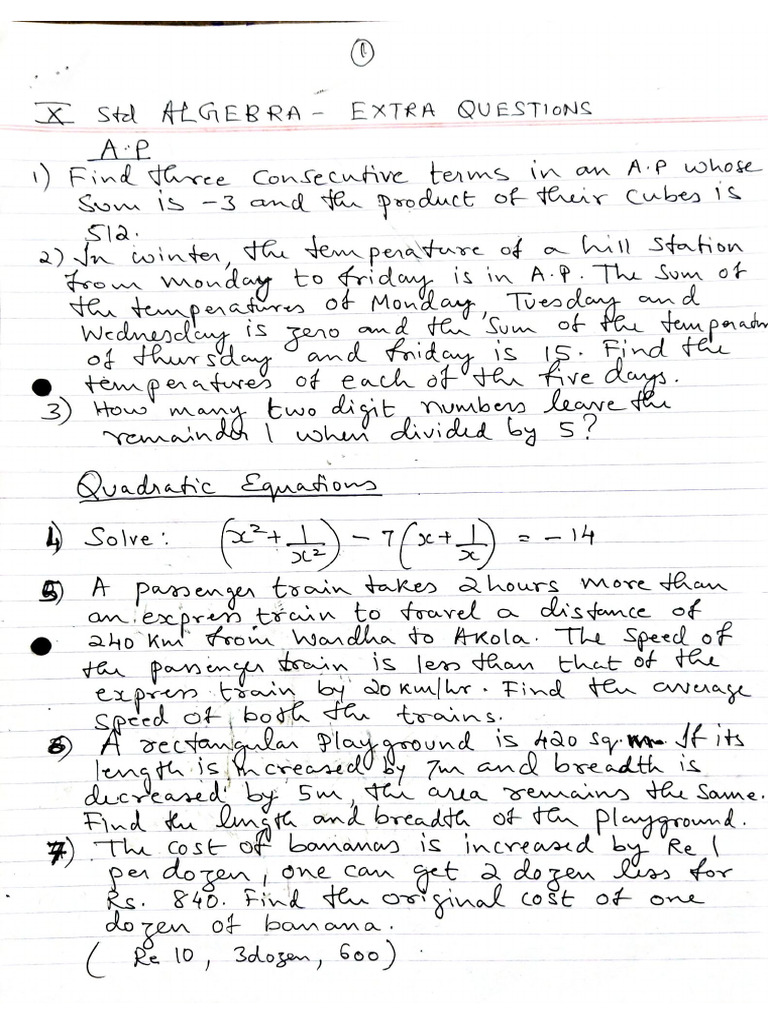 1
X Std ALGEBRA - EXTRA QUESTIONS
A.P
1) Find three consecutive terms in an A.P whose
sum is -3 and the product of their cubes is
512.
2) In winter, the temperature of a hill station
from Monday to friday is in A.P. The sum of
the temperatures of Monday, Tuesday and
Wednesday is zero and the sum of the temperature
of thursday and friday is 15. Find the
temperatures of each of the five days.
3) How many two digit numbers leave the
remainder 1 when divided by 5?
Quadratic Equations
4) Solve: (x² + 1/x²) - 7(x + 1/x) = -14
5) A passenger train takes 2 hours more than
an express train to travel a distance of
240 km from Wardha to Akola. The speed of
the passenger train is less than that of the
express train by 20 km/hr. Find the average
speed of both the trains.
6) A rectangular playground is 420 sq.m. If its
length is increased by 7m and breadth is
decreased by 5m, the area remains the same.
Find the length and breadth of the playground.
7) The cost of bananas is increased by Re 1
per dozen, one can get 2 dozen less for
Rs. 840. Find the original cost of one
dozen of banana.
( Re 10, 3dozen, 600)